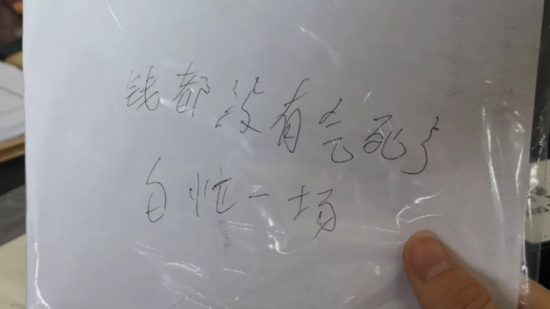 钱都没有气死了
白忙一场